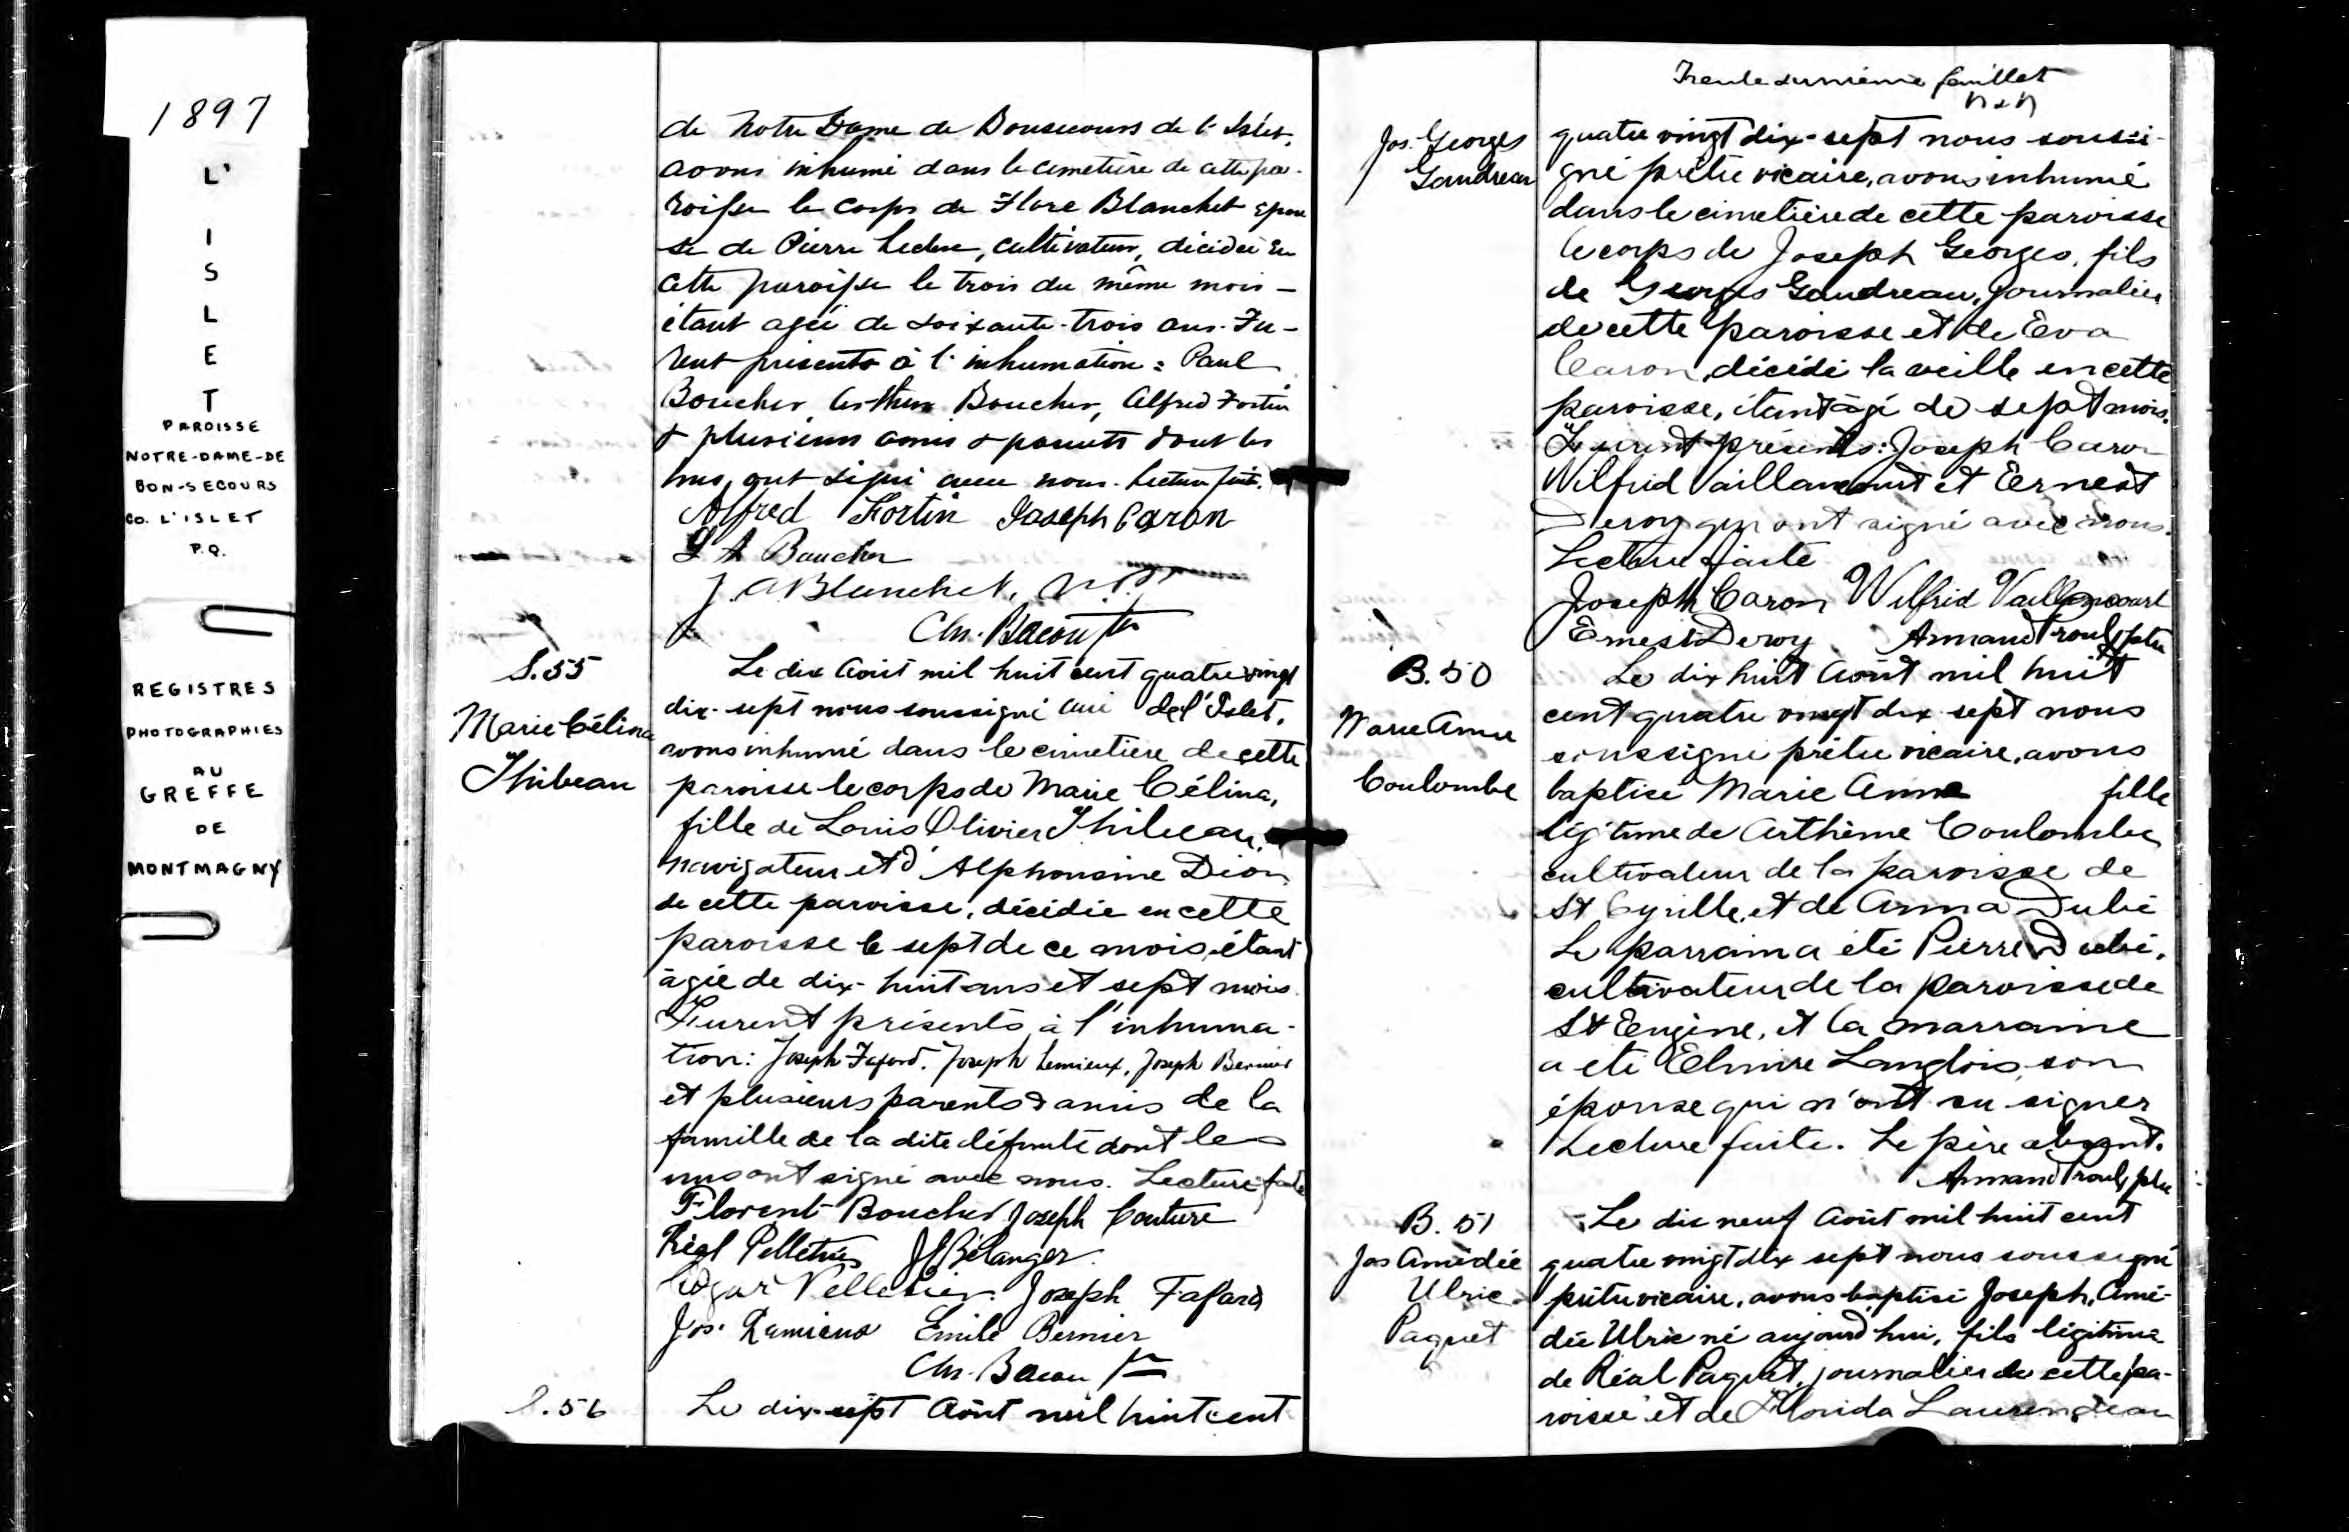 1897
L'
I
S
L
E
T
PAROISSE
NOTRE-DAME-DE
BON-SECOURS
CO. L'ISLET
P.Q.
REGISTRES
PHOTOGRAPHIES
AU
GREFFE
DE
MONTMAGNY
de Notre Dame de Bonsecours de l'Islet,
avons inhumé dans le cimetière de cette pa-
roisse le corps de Flore Blanchet épou
se de Pierre Leclerc, cultivateur, décédée en
cette paroisse le trois du même mois -
étant agée de soixante-trois ans. Fu-
rent présents à l'inhumation: Paul
Boucher, Arthur Boucher, Alfred Fortin
& plusieurs amis & parents dont les
uns, ont signé avec nous. Lecture faite.
Alfred Fortin Joseph Caron
Boucher
J. A Blanchet, N.P.
Chs. Bacon Ptre
S. 55
Marie Célina
Thibeau
Le dix Août mil huit cent quatre vingt
dix-sept nous soussigné curé de l'Islet,
avons inhumé dans le cimetière de cette
paroisse le corps de Marie Célina,
fille de Louis Olivier Thibeau,
navigateur et d'Alphonsine Dion
de cette paroisse, décédée en cette
paroisse le sept de ce mois, étant
âgée de dix-huit ans et sept mois.
Furent présents à l'inhuma-
tion: Joseph Fafard, Joseph Lemieux, Joseph Bernier
et plusieurs parents & amis de la
famille de la dite défunte dont les
uns ont signé avec nous. Lecture faite
Florent Boucher Joseph Couture
Réal Pelletier J Bélanger
Edgar Pelletier Joseph Fafard
Jos. Lemieux Emile Bernier
Chs. Bacon Ptre
S. 56
Le dix-sept Août mil huit cent
Trente deuxième feuillet
Jos. Georges
Gaudreau
quatre vingt dix-sept nous soussi-
gné prêtre vicaire, avons inhumé
dans le cimetière de cette paroisse
le corps de Joseph Georges, fils
de Georges Gaudreau, journalier
de cette paroisse et de Eva
Caron, décédé la veille en cette
paroisse, étant âgé de sept mois.
Furent présents: Joseph Caron
Wilfrid Vaillancourt et Ernest
Deroy qui ont signé avec nous.
Lecture faite
Joseph Caron Wilfrid Vaillancourt
Ernest Deroy Armand Proulx ptre
B. 50
Marie Anne
Coulombe
Le dix huit Août mil huit
cent quatre vingt dix sept nous
soussigné prêtre vicaire, avons
baptisé Marie Anne fille
légitime de Arthème Coulombe
cultivateur de la paroisse de
St Cyrille, et de Anna Dubé
Le parrain a été Pierre Dubé,
cultivateur de la paroisse de
St Eugène, et la marraine
a été Elmire Langlois, son
épouse qui n'ont su signer
Lecture faite. Le père absent.
Armand Proulx ptre
B. 51
Jos Amédée
Ulric
Paquet
Le dix neuf Août mil huit cent
quatre vingt dix sept nous soussigné
prêtre vicaire, avons baptisé Joseph, Amé-
dée Ulric né aujourd'hui, fils légitime
de Réal Paquet, journalier de cette pa-
roisse et de Florida Laurendeau